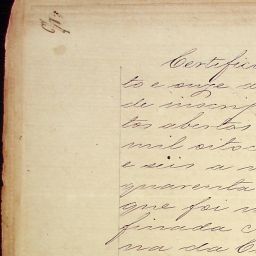 Certific
to e onze d
de inscrip
tos abertos
mil oitoc
e seis a n
quarenta
que foi
finada
na da C